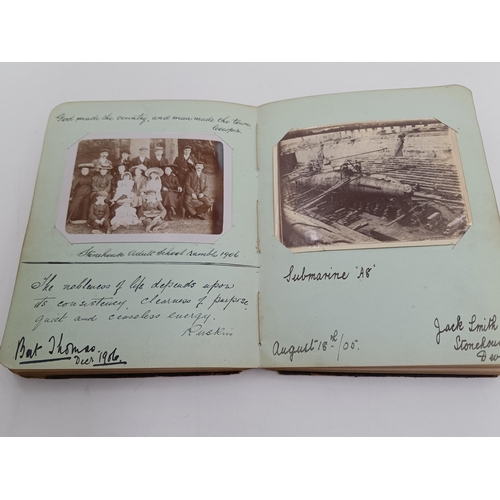 God made the country, and man made the town
Cowper
Stonehouse Adult School Ramble 1906
The nobleness of life depends upon
its consistency, clearness of purpose,
quiet and ceaseless energy.
Ruskin
Bert Thomas
Decr 1906.
Submarine "A8"
August 18th/05.
Jack Smith
Stonehou
Dev